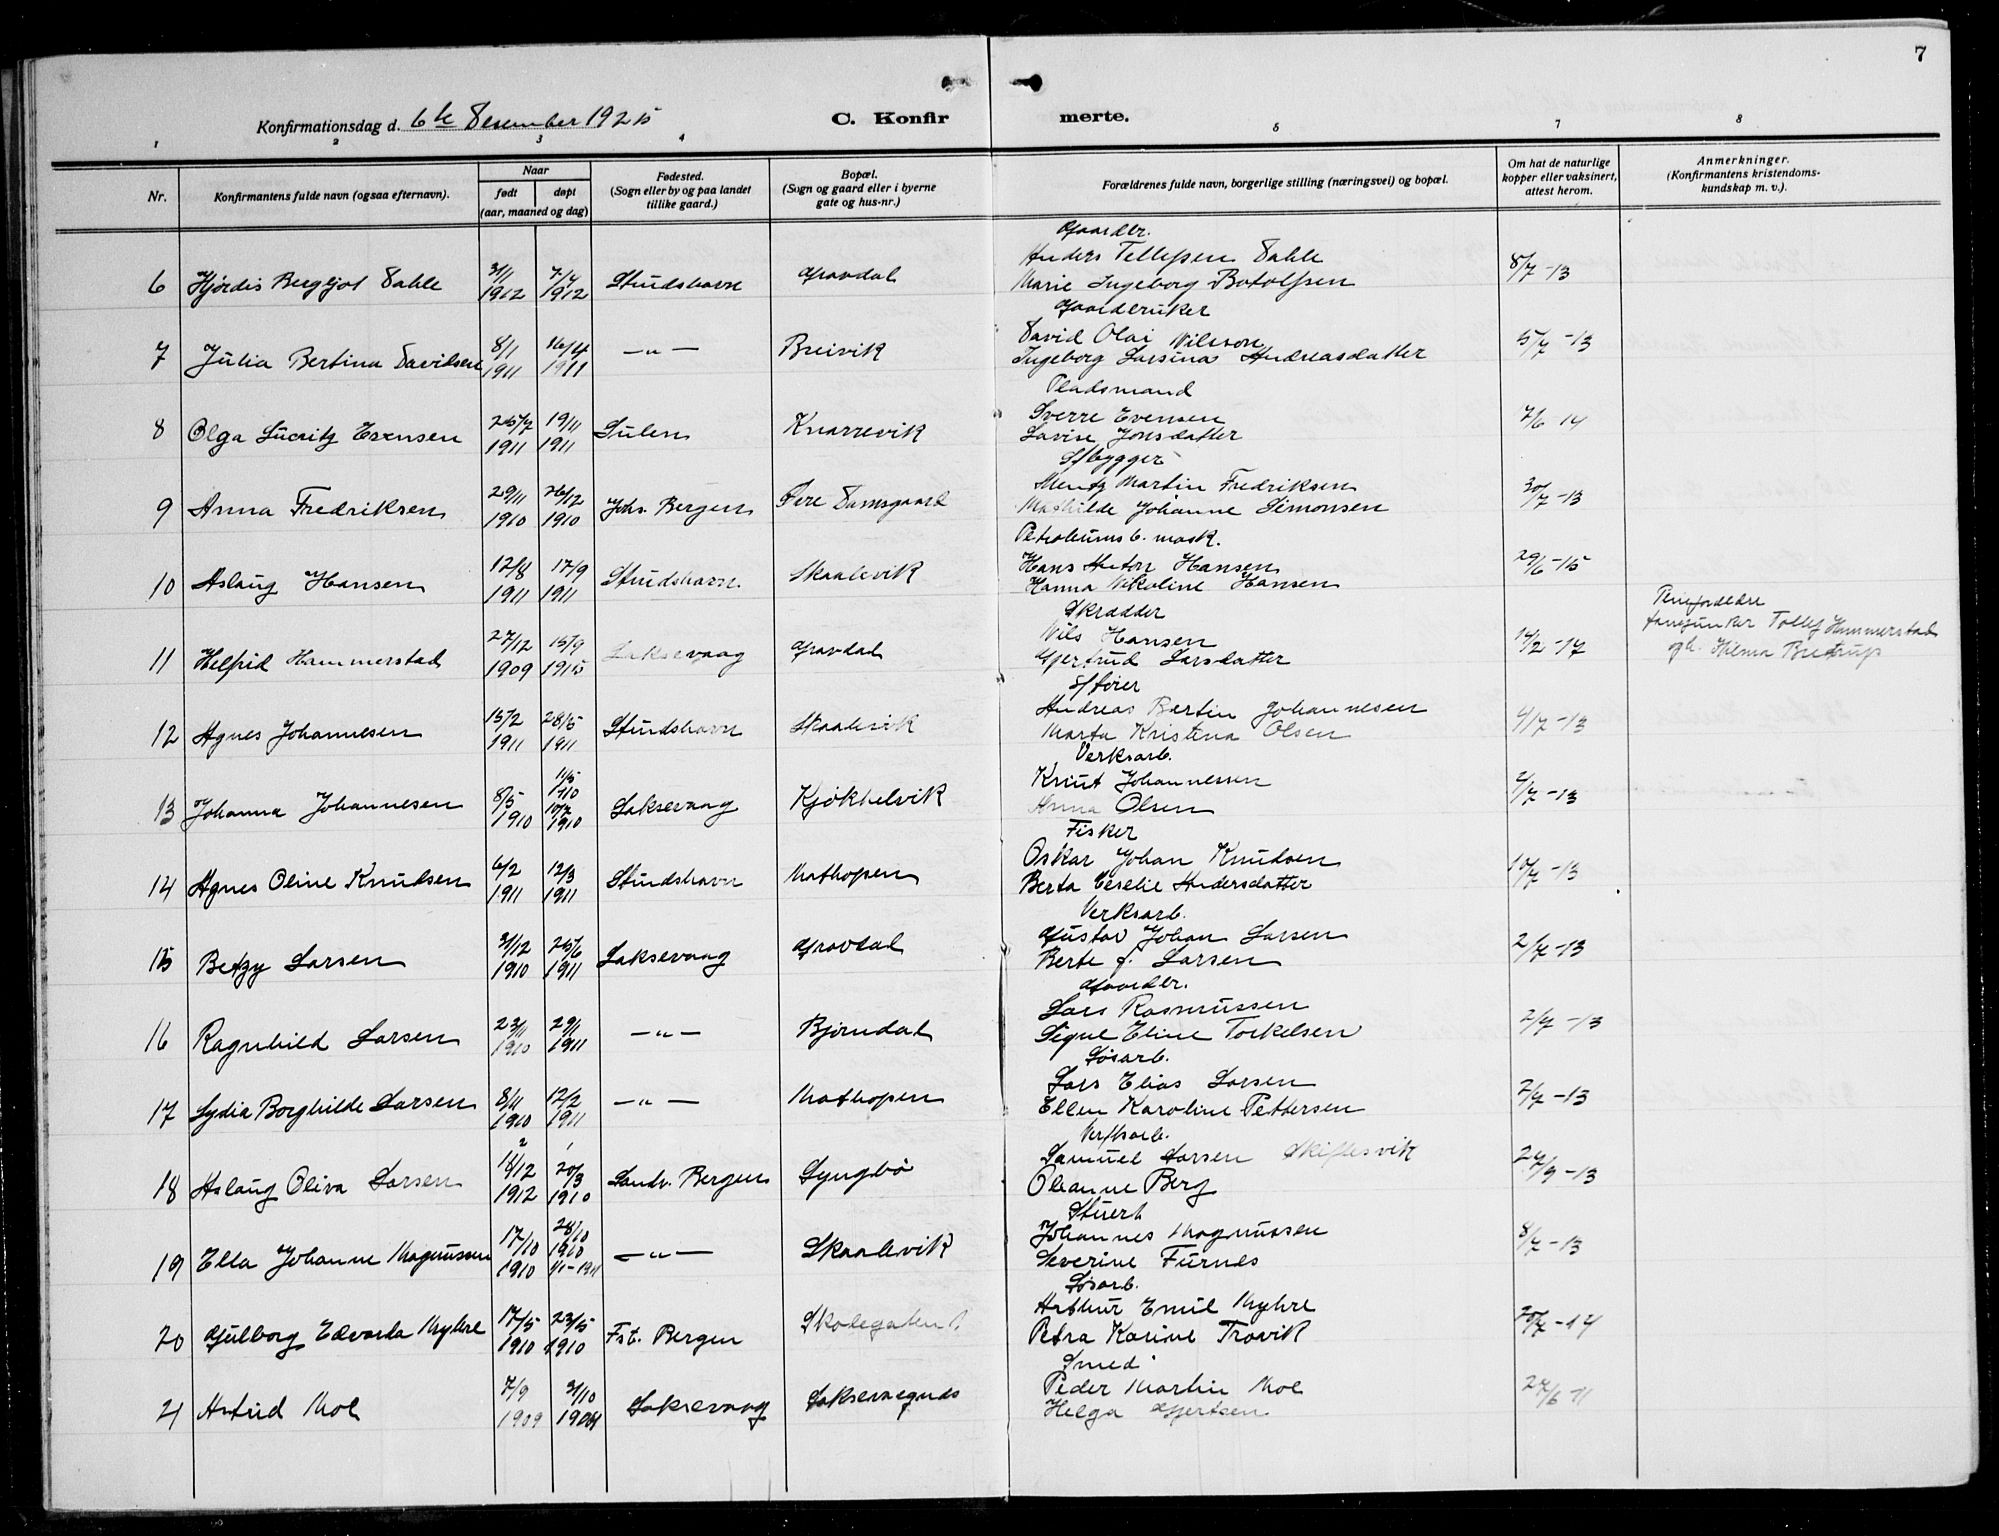 7
Konfirmationsdag d. 6te Desember 1925
C. Konfir merte.
1 2 3 4 5 7 8
Nr.
Konfirmantens fulde navn (ogsaa efternavn).
Naar
født døpt
(aar, maaned og dag)
Fødested.
(Sogn eller by og paa landet
tillike gaard.)
Bopæl.
(Sogn og gaard eller i byerne
gate og hus-nr.)
Forældrenes fulde navn, borgerlige stilling (næringsvei) og bopæl.
Om hat de naturlige
kopper eller vaksinert,
attest herom.
Anmerkninger.
(Konfirmantens kristendoms-
kundskap m. v.).
Gaardbr.
Anders Tellefsen Dahle
6 Hjørdis Bergljot Dahle 3/1 1912 7/4 1912 Studshavn Gravdal Marie Ingeborg Botolfsen 8/7-13
Gaardbruker
David Olai Nilsson
7 Julia Bertina Davidsen 8/1 1911 16/4 1911 -"- Breivik Ingeborg Larsina Andreasdatter 5/7-13
Pladsmand
Sverre Evensen
8 Olga Evensen 25/7 1911 19/11 1911 Sulen Knarrevik Lavise Jonsdatter 7/6 14
Mentz Martin Fredriksen
9 Anna Fredriksen 29/11 1910 26/12 1910 Johs. Bergen Øvre Damsgaard Mathilde Johanne Simonsen 30/7-13
Petroleumsb. mask.
Hans Anton Hansen
10 Aslaug Hansen 12/8 1911 17/9 1911 Studshavn Skaalevik Hanna Nikoline Hansen 29/6-15
Skrædder
Nils Hansen
11 Helfrid Hammerstad 27/12 1909 15/9 1915 Laksevaag Gravdal Gjertrud Larsdatter 14/2-17 Pleieforældre
Tollef Hammerstad
Hilma
Andreas Bertin Johannesen
12 Agnes Johannesen 15/2 1911 28/5 1911 Studshavn Skaalevik Marta Kristina Olsen 4/7-13
Verksarb.
Knut Johannessen
13 Johanna Johannesen 8/5 1910 11/5 1910 10/7 1910 Laksevaag Kjøkkelvik Anna Olsen 2/7-13
Fisker
Oskar Johan Knudsen
14 Agnes Oline Knudsen 6/2 1911 12/3 1911 Studshavn Mathopen Berta Andersdatter 10/7-13
Verksarb.
Gustav Johan Larsen
15 Betzy Larsen 31/12 1910 25/6 1911 Laksevaag Gravdal Berte J. Larsen 2/7-13
Gaardbr.
Lars Rasmussen
16 Ragnhild Larsen 23/11 1910 29/1 1911 -"- Bjørndal Signe Eline Torkelsen 2/7-13
Løsarb.
Lars Elias Larsen
17 Lydia Borghilde Larsen 8/11 1910 12/2 1911 -"- Mathopen Ellen Karoline Pettersen 2/7-13
Verftsarb.
Samuel Larsen Skiftesvik
18 Aslaug Oliva Larsen 14/12 1912 20/3 1910 Sandv. Bergen Lyngbø Oleanne Berg 24/9-13
Stuert
Johannes Magnussen
19 Ella Johanne Magnussen 17/10 1910 28/10 1910 1/1-1911 -"- Skaalevik Severine Furnes 8/7-13
Løsarb.
Arthur Emil Myhre
20 Gulborg Edvarda Myhre 17/5 1910 23/5 1910 Fst. Bergen Skolegaten 1 Petra Karine Travik 20/7-14
Smed
Peder Martin Moe
21 Astrid Moe 7/9 1909 31/10 Laksevaag Laksevaagnes Helga Gjertsen 27/6 11